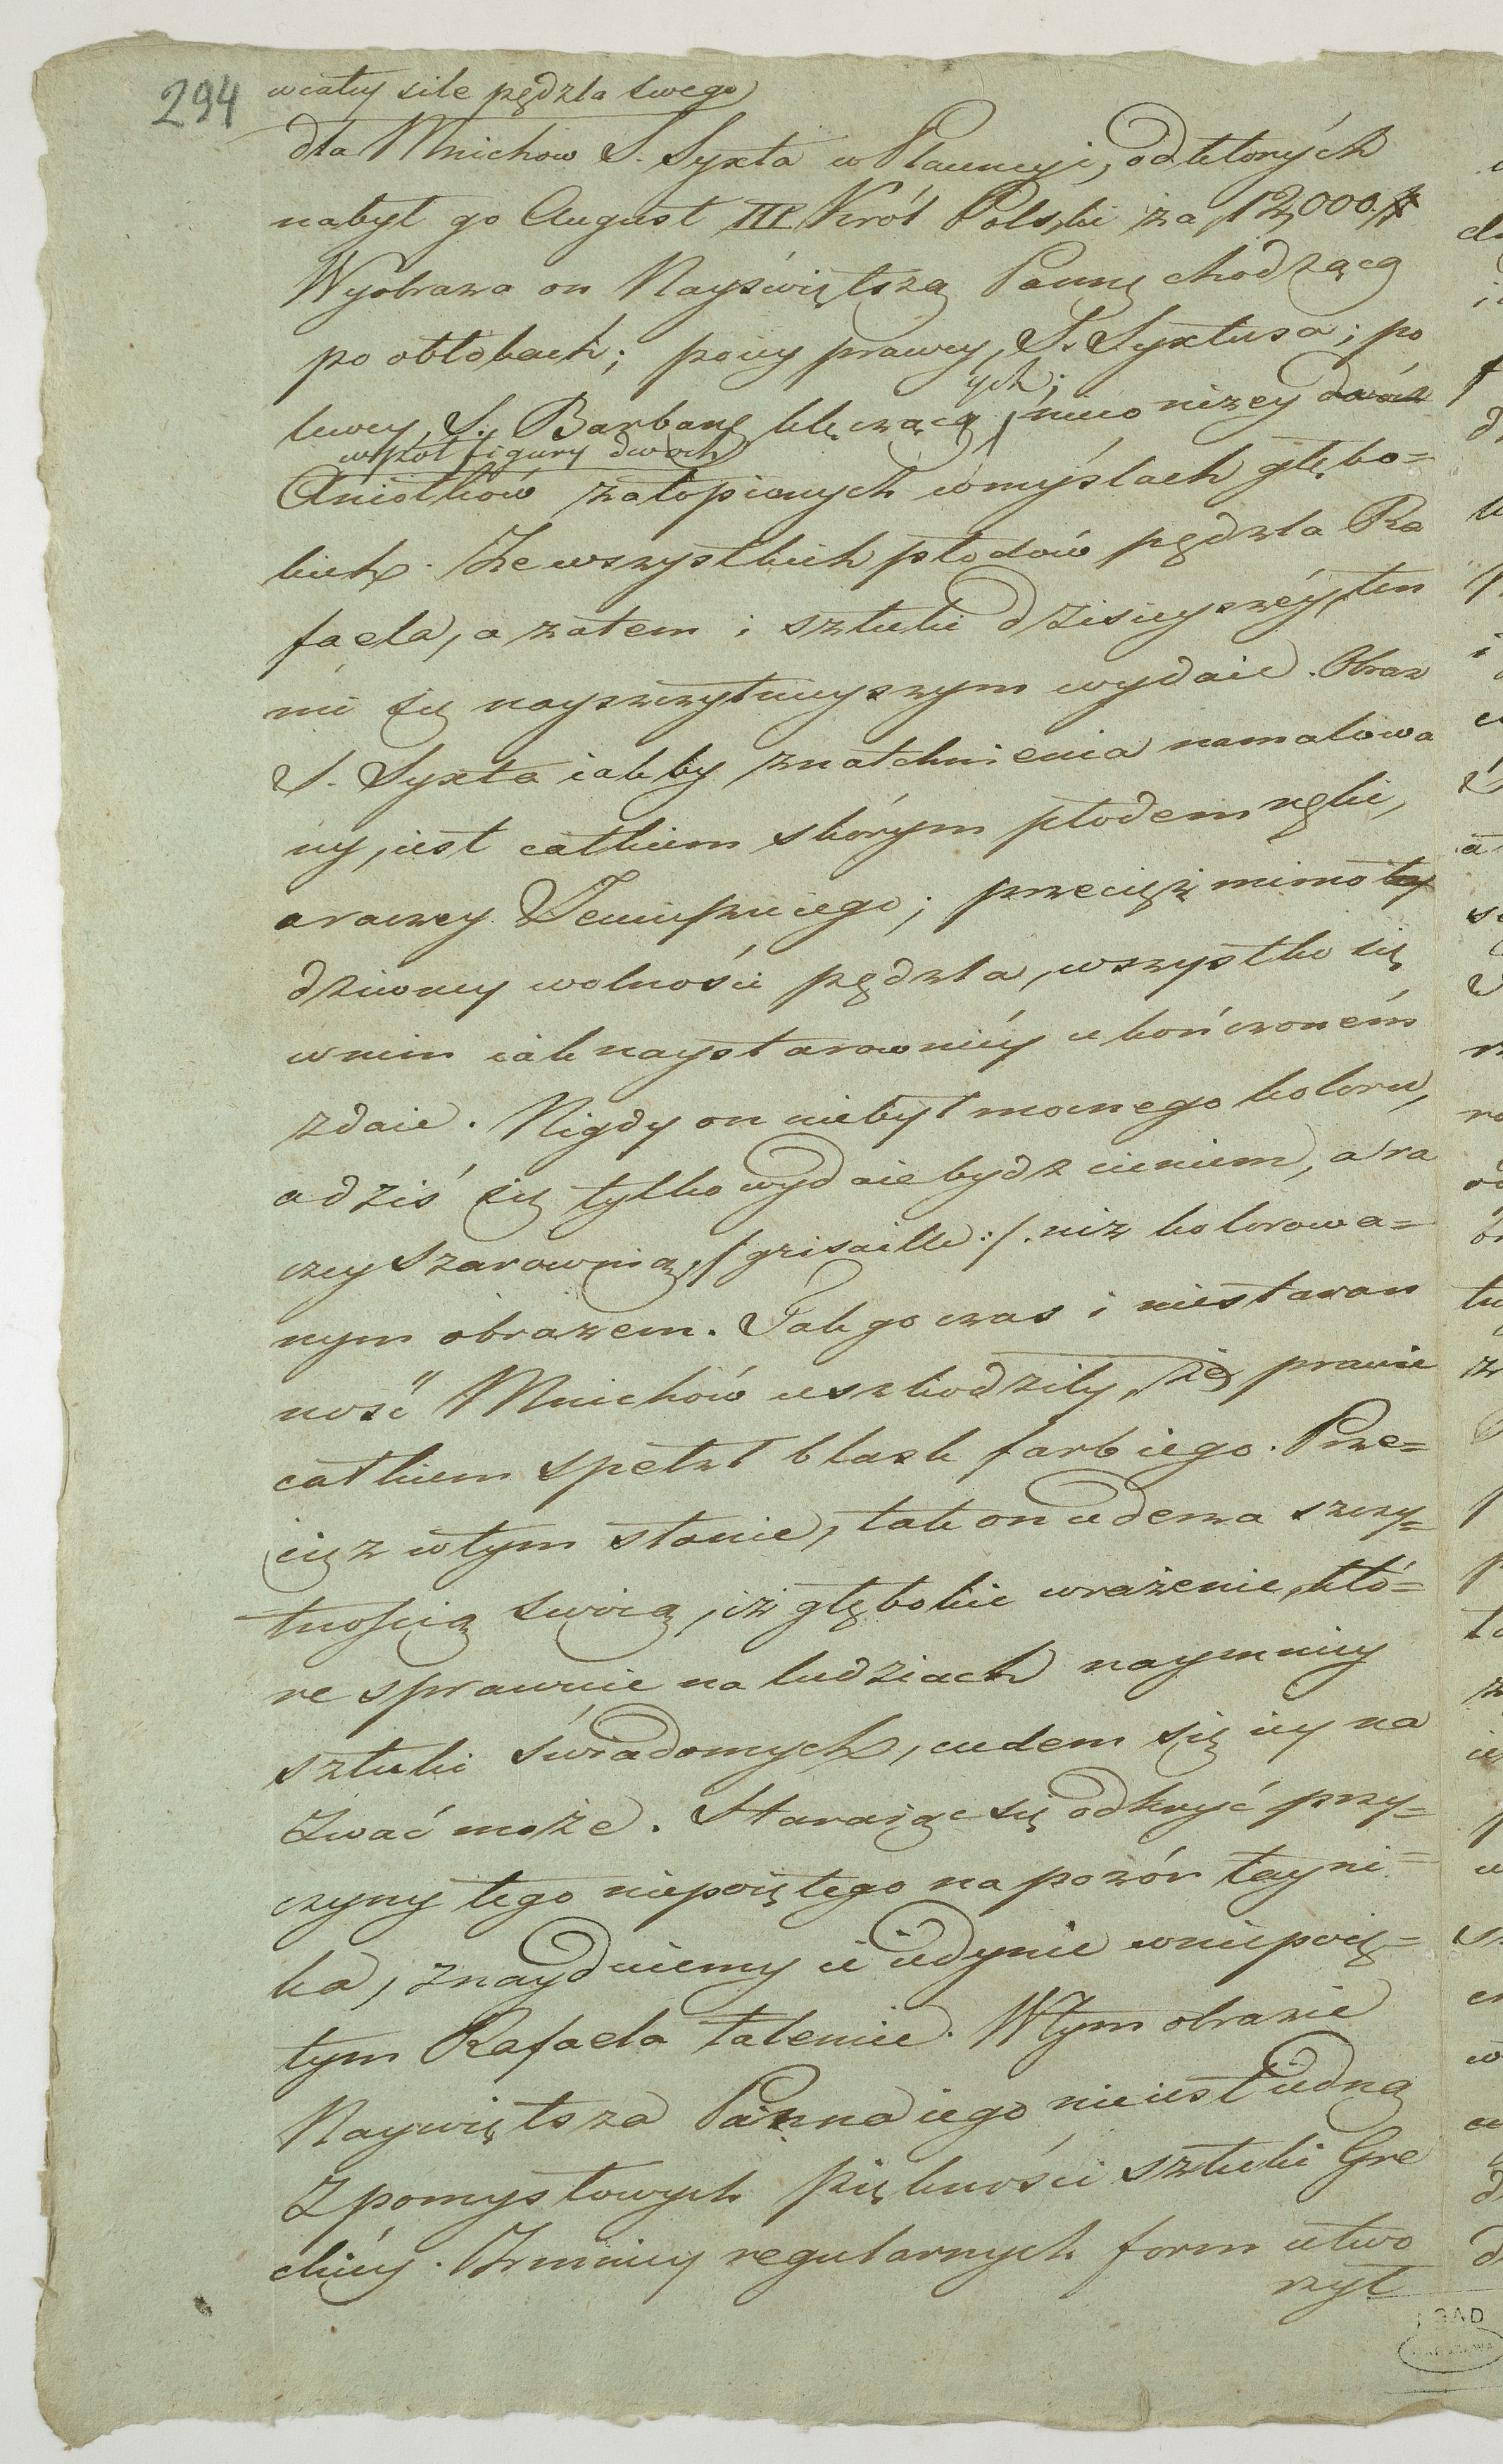 294
w całey sile pędzla swego
dla Mnichow S. Syxta w Placencyi, od których
nabył go August III Król Polski za 12,000 #
Wyobraża on Nayświętszą Pannę chodzącą
po obłokach; po iey prawey, S. Syxtusa; po
lewey, S. Barbarę klęczących; nieco niżey dwóch
wpół figury dwóch
Aniołków zatopionych w myślach głębo=
kich. Ze wszystkich płodów pędzla Ra
faela, a zatem i sztuki dzisieyszéy, ten
mi się nayszczytnieyszym wydaie. Obraz
S. Syxta iakby z natchnienia namalowa
ny, iest całkiem skórym płodem ręki,
a raczey Geniuszu iego; przecięż mimo tey
dziwney wolności pędzla, wszystko się
w nim iak naystarowniéy ukończoném
zdaie. Nigdy on niebył mocnego koloru,
a dziś się tylko wydaie bydz cieniem, a ra
czey szarownią, /: grisaille :/ niż kolorowa=
nym obrazem. Tak go czas i niestaran
ność Mnichów uszkodziły, że prawie
całkiem spełzł blask farb iego. Prze=
cięż w tym stanie, tak on uderza szczy=
tnością swoią, iż głębokie wrażenie, któ=
re sprawuie na ludziach naymniey
sztuki świadomych, cudem się iey na
zwać może. Staraiąc się odkryć przy=
czyny tego niepoiętego na pozór tayni=
ka, znaydziemy ie iedynie w niepoię=
tym Rafaela talencie. W tym obrazie
Naywiętsza Panna iego nie iest iedną
z pomysłowych piękności sztuki Gre
ckiéy. Z mniey regularnych form utwo
rzył